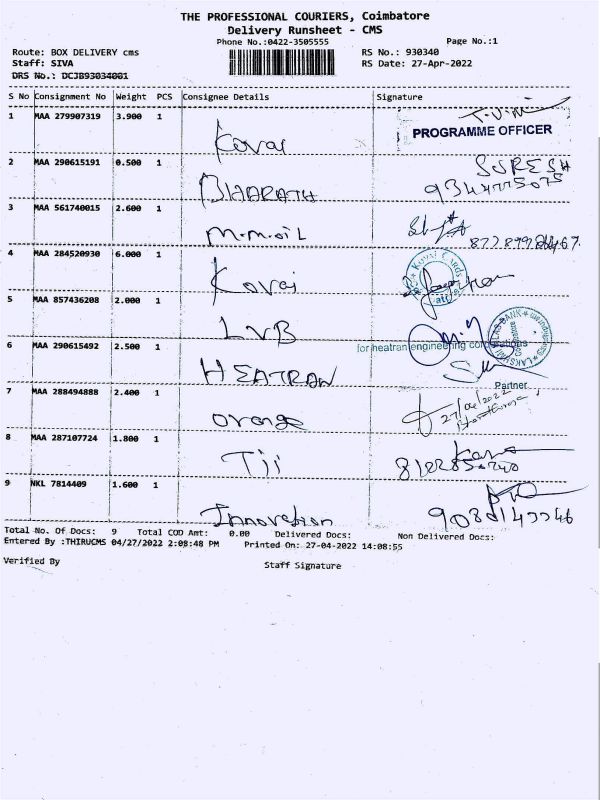 THE PROFESSIONAL COURIERS, Coimbatore
Delivery Runsheet - CMS
Phone No.:0422-3505555 Page No.:1
Route: BOX DELIVERY cms RS No.: 930340
Staff: SIVA RS Date: 27-Apr-2022
DRS No.: DCJB93034001
S No Consignment No Weight PCS Consignee Details Signature
1 MAA 279907319 3.900 1
PROGRAMME OFFICER
Kovai
2 MAA 290615191 0.500 1 SURESH
BHARATH
3 MAA 561740015 2.600 1
M.M.OIL
4 MAA 284520930 6.000 1
Kovai
5 MAA 857436208 2.000 1
LVB
6 MAA 290615492 2.500 1 for heatran engineering corporations
HEATRAN
Partner
7 MAA 288494888 2.400 1
orange
8 MAA 287107724 1.800 1
Tji
9 NKL 7814409 1.600 1
Innovation
Total No. Of Docs: 9 Total COD Amt: 0.00 Delivered Docs: Non Delivered Docs:
Entered By :THIRUCMS 04/27/2022 2:08:48 PM Printed On: 27-04-2022 14:08:55
Verified By Staff Signature